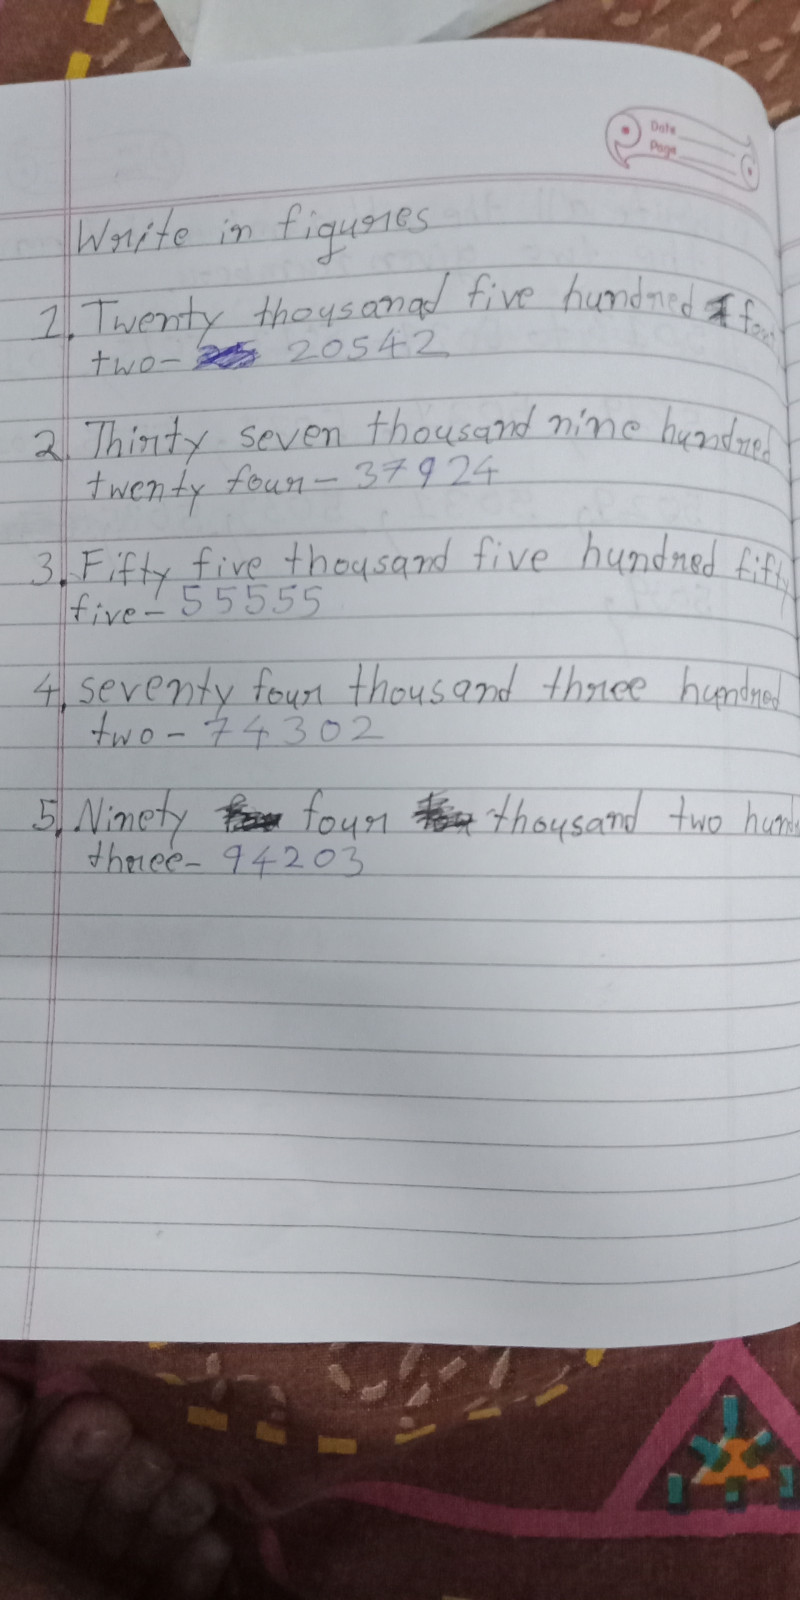 Date
Page
Write in figures
1. Twenty thousanad five hundred
two- 20542
2. Thirty seven thousand nine hundred
twenty four - 37924
3. Fifty five thousand five hundred fifty
five - 55555
4. seventy four thousand three hundred
two - 74302
5. Ninety four thousand two
three- 94203